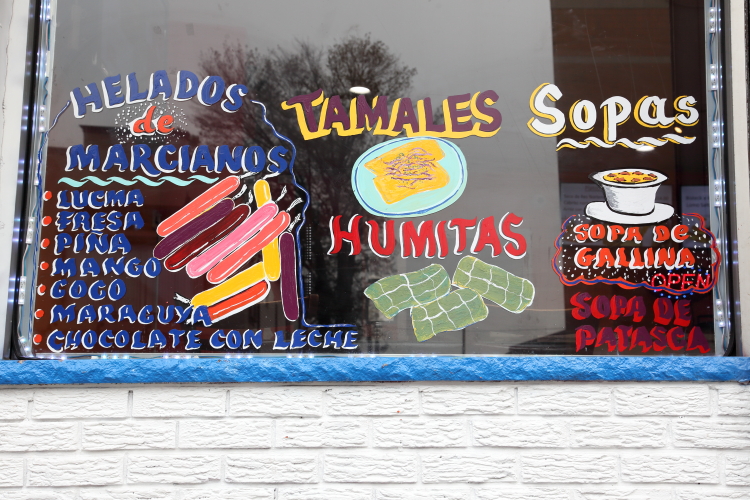 HELADOS
de
MARCIANOS
LUCMA
FRESA
PIÑA
MANGO
COCO
MARAGUYA
CHOCOLATE CON LECHE
TAMALES
HUMITAS
Sopas
SOPA DE
GALLINA
OPEN
SOPA DE
PATASCA